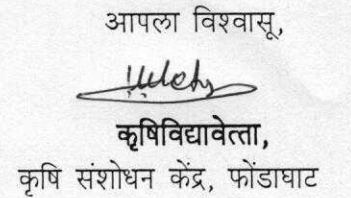 आपला विश्वासू,
कृषिविद्यावेत्ता,
कृषि संशोधन केंद्र, फोंडाघाट